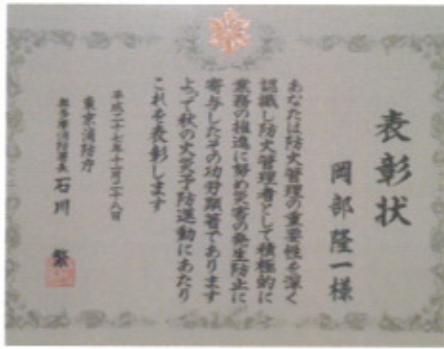 表彰状
岡部隆一様
あなたは防火管理の重要性を深く
認識し防火管理者として積極的に
業務の推進に努め災害の発生防止に
寄与したその功労顕著であります
よって秋の火災予防運動にあたり
これを表彰します
平成二十七年十一月二十八日
東京消防庁
奥多摩消防署長 石川 繁